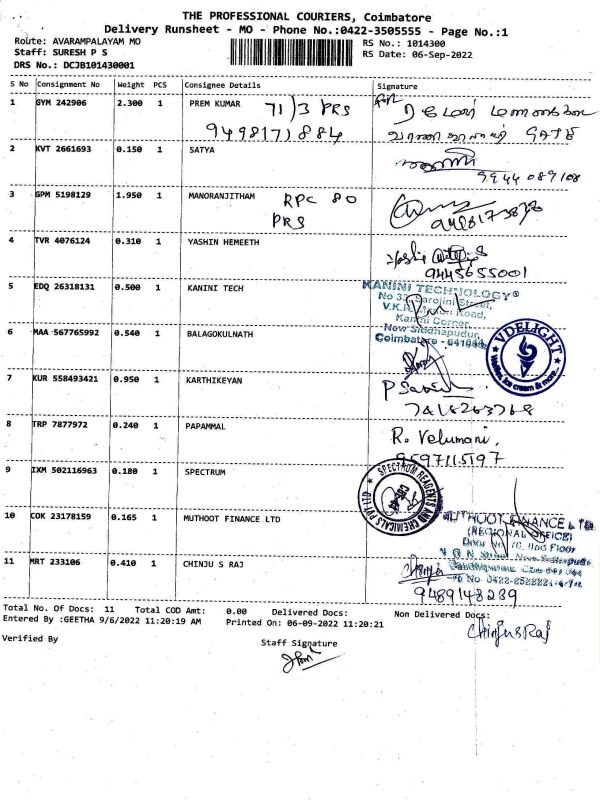 THE PROFESSIONAL COURIERS, Coimbatore
Delivery Runsheet - MO - Phone No.:0422-3505555 - Page No.:1
Route: AVARAMPALAYAM MO
Staff: SURESH P S
DRS No.: DCJB101430001
RS No.: 1014300
RS Date: 06-Sep-2022
S No Consignment No Weight PCS Consignee Details Signature
1 GYM 242906 2.300 1 PREM KUMAR 71/3 PRS
9498171884
2 KVT 2661693 0.150 1 SATYA
9944 089108
3 GPM 5198129 1.950 1 MANORANJITHAM RPC 80
PRS
4 TVR 4076124 0.310 1 YASHIN HEMEETH
9445655001
5 EDQ 26318131 0.500 1 KANINI TECH
KANINI TECHNOLOGY®
No 33, Sarojini Street,
Road,
Kanini Corner,
New Siddhapudur,
Coimbatore - 641044
6 MAA 567765992 0.540 1 BALAGOKULNATH
VDELIGHT
Waffles, Ice cream & more...
7 KUR 558493421 0.950 1 KARTHIKEYAN
8 TRP 7877972 0.240 1 PAPAMMAL
R. Velumani,
9597115197
9 IXM 502116963 0.180 1 SPECTRUM
SPECTRUM REAGENTS AND CHEMICALS PVT. LTD
10 COK 23178159 0.165 1 MUTHOOT FINANCE LTD
MUTHOOT FINANCE LTD
(REGIONAL OFFICE)
Floor
11 MRT 233106 0.410 1 CHINJU S RAJ
9489148239
Total No. Of Docs: 11 Total COD Amt: 0.00 Delivered Docs: Non Delivered Docs:
Entered By :GEETHA 9/6/2022 11:20:19 AM Printed On: 06-09-2022 11:20:21
Chinju S Raj
Verified By Staff Signature